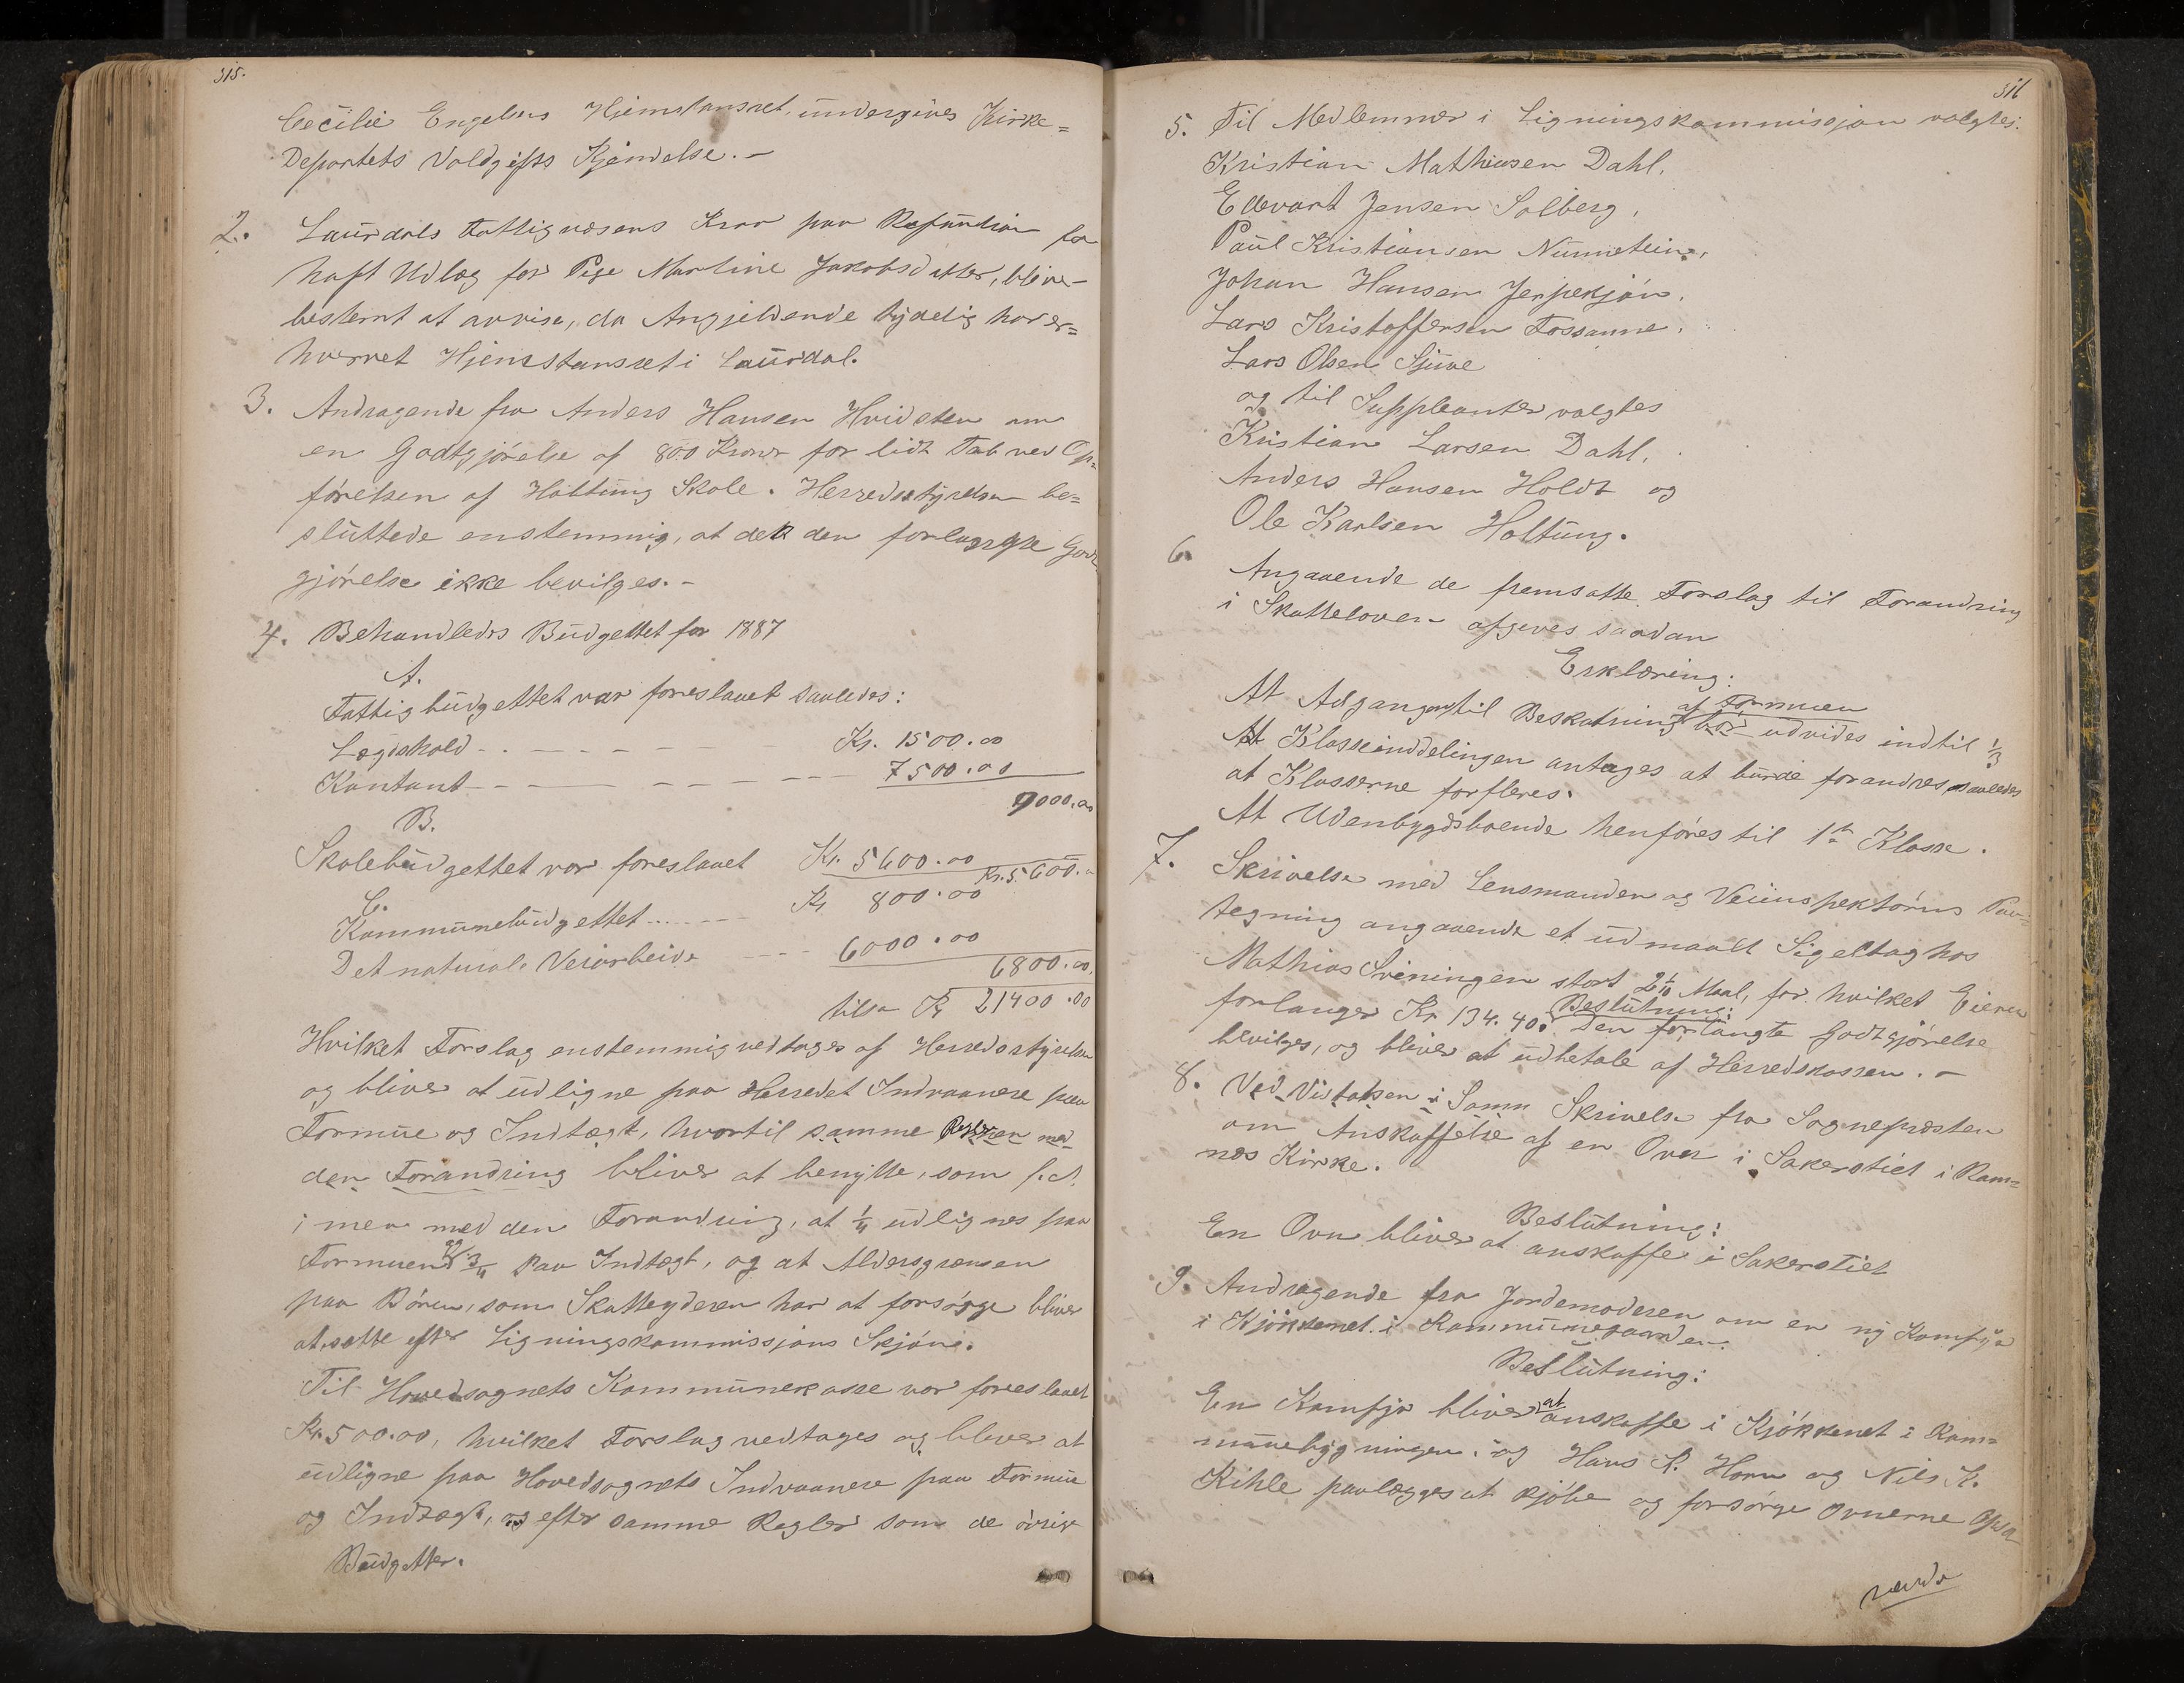 315.
Cecilie Engelsens Hjemstansret, undergives Kirke=
Departets Voldgifts Kjendelse. –
2. Laurdals Fattigvæsens Krav paa Refundsion for
haft Udlæg for Pige Martine Jakobsdatter, blive
bestemt at avvise, da Angjeldende tydelig har er=
hvervet Hjemstansret i Laurdal.
3. Andragende fra Anders Hansen Hvidsten om
en Godtgjörelse af 800 Kroner for lidt Tab ved Op=
förelsen af Holtung Skole. Herredsstyrelsen be=
sluttede enstemmig, at den forlangte God
gjörelse ikke bevilges. –
4. Behandledes Budgettet for 1887
A.
Fattigbudgettet var foreslaaet saaledes:
Lægdshold - - - - Kr. 1500.00
Kontant - - - - - - 7500.00
9000.00
B.
Skolebudgettet var foreslaaet Kr. 5600.00
Kr. 5600.
C.
Kommunebudgettet ..... Kr 800.00
Det natural. Veiarbeide - - - 6000.00
6800.00.
tils. Kr 21400.00
Hvilket Forslag enstemmig vedtages af Herredsstyrelsen
og bliver at udligne paa Herredet Indvaanere paa
Formue og Indtægt, hvortil samme Regler med
den Forandring bliver at benytte, som f. A.
i men med den Forandring, at 1/4 udlignes paa
Formuen og 3/4 paa Indtægt, og at Aldersgrænsen
paa Börn, som Skatteyderen har at forsörge bliver
at sætte efter Ligningskommissjons Skjön.
Til Hovedsognets Kommunekasse var foreslaaet
Kr. 500.00, hvilket Forslag vedtages og bliver at
udligne paa Hovedsognets Indvaanere paa Formue
og Indtægt, og efter samme Regler som de övrige
Budgetter.
316
5. Til Medlemmer i Ligningskommissjon valgtes:
Kristian Mathiasen Dahl,
Edevart Jensen Solberg,
Paul Kristiansen Nümetün,
Johan Hansen Jerpekjön,
Lars Kristoffersen Fossanne,
Lars Olsen Sjuve
og til Suppleanter valgtes
Kristian Larsen Dahl,
Anders Hansen Holdt og
Ole Karlsen Holtung.
6. Angaaende de fremsatte Forslag til Forandring
i Skatteloven afgives saadan
Erklæring:
At Adgangen til Beskatning af Formuen bör udvides indtil 1/3
At Klasseinddelingen antages at burde forandres, saaledes
at Klasserne forfleres.
At Udenbygdsboende henföres til 1ste Klasse.
7. Skrivelse med Lensmanden og Veiinspektörens Paa=
tegning angaaende et udmaalt Sigeltag hos
Mathias Sveningen stort 2 1/10 Maal, for hvilket Eieren
forlanger Kr. 134.40. Beslutning: Den forlangte Godtgjörelse
bevilges, og bliver at udbetale af Herredskassen. –
8. Ved Vistatsen i Samn Skrivelse fra Sognepresten
om Anskaffelse af en Ovn i Sakerstiet i Ram=
nes Kirke.
Beslutning:
En Ovn bliver at anskaffe i Sakerstiet
9. Andragende fra Jordemoderen om en ny Komfyr
i Kjökkenet i Kommunegaarden.
Beslutning:
En Komfyr bliver at anskaffe i Kjökkenet i Kom=
munebygningen, og Hans P. Horn og Nils K.
Kihle paalægges at kjöbe og forsörge Ovnerne opsa